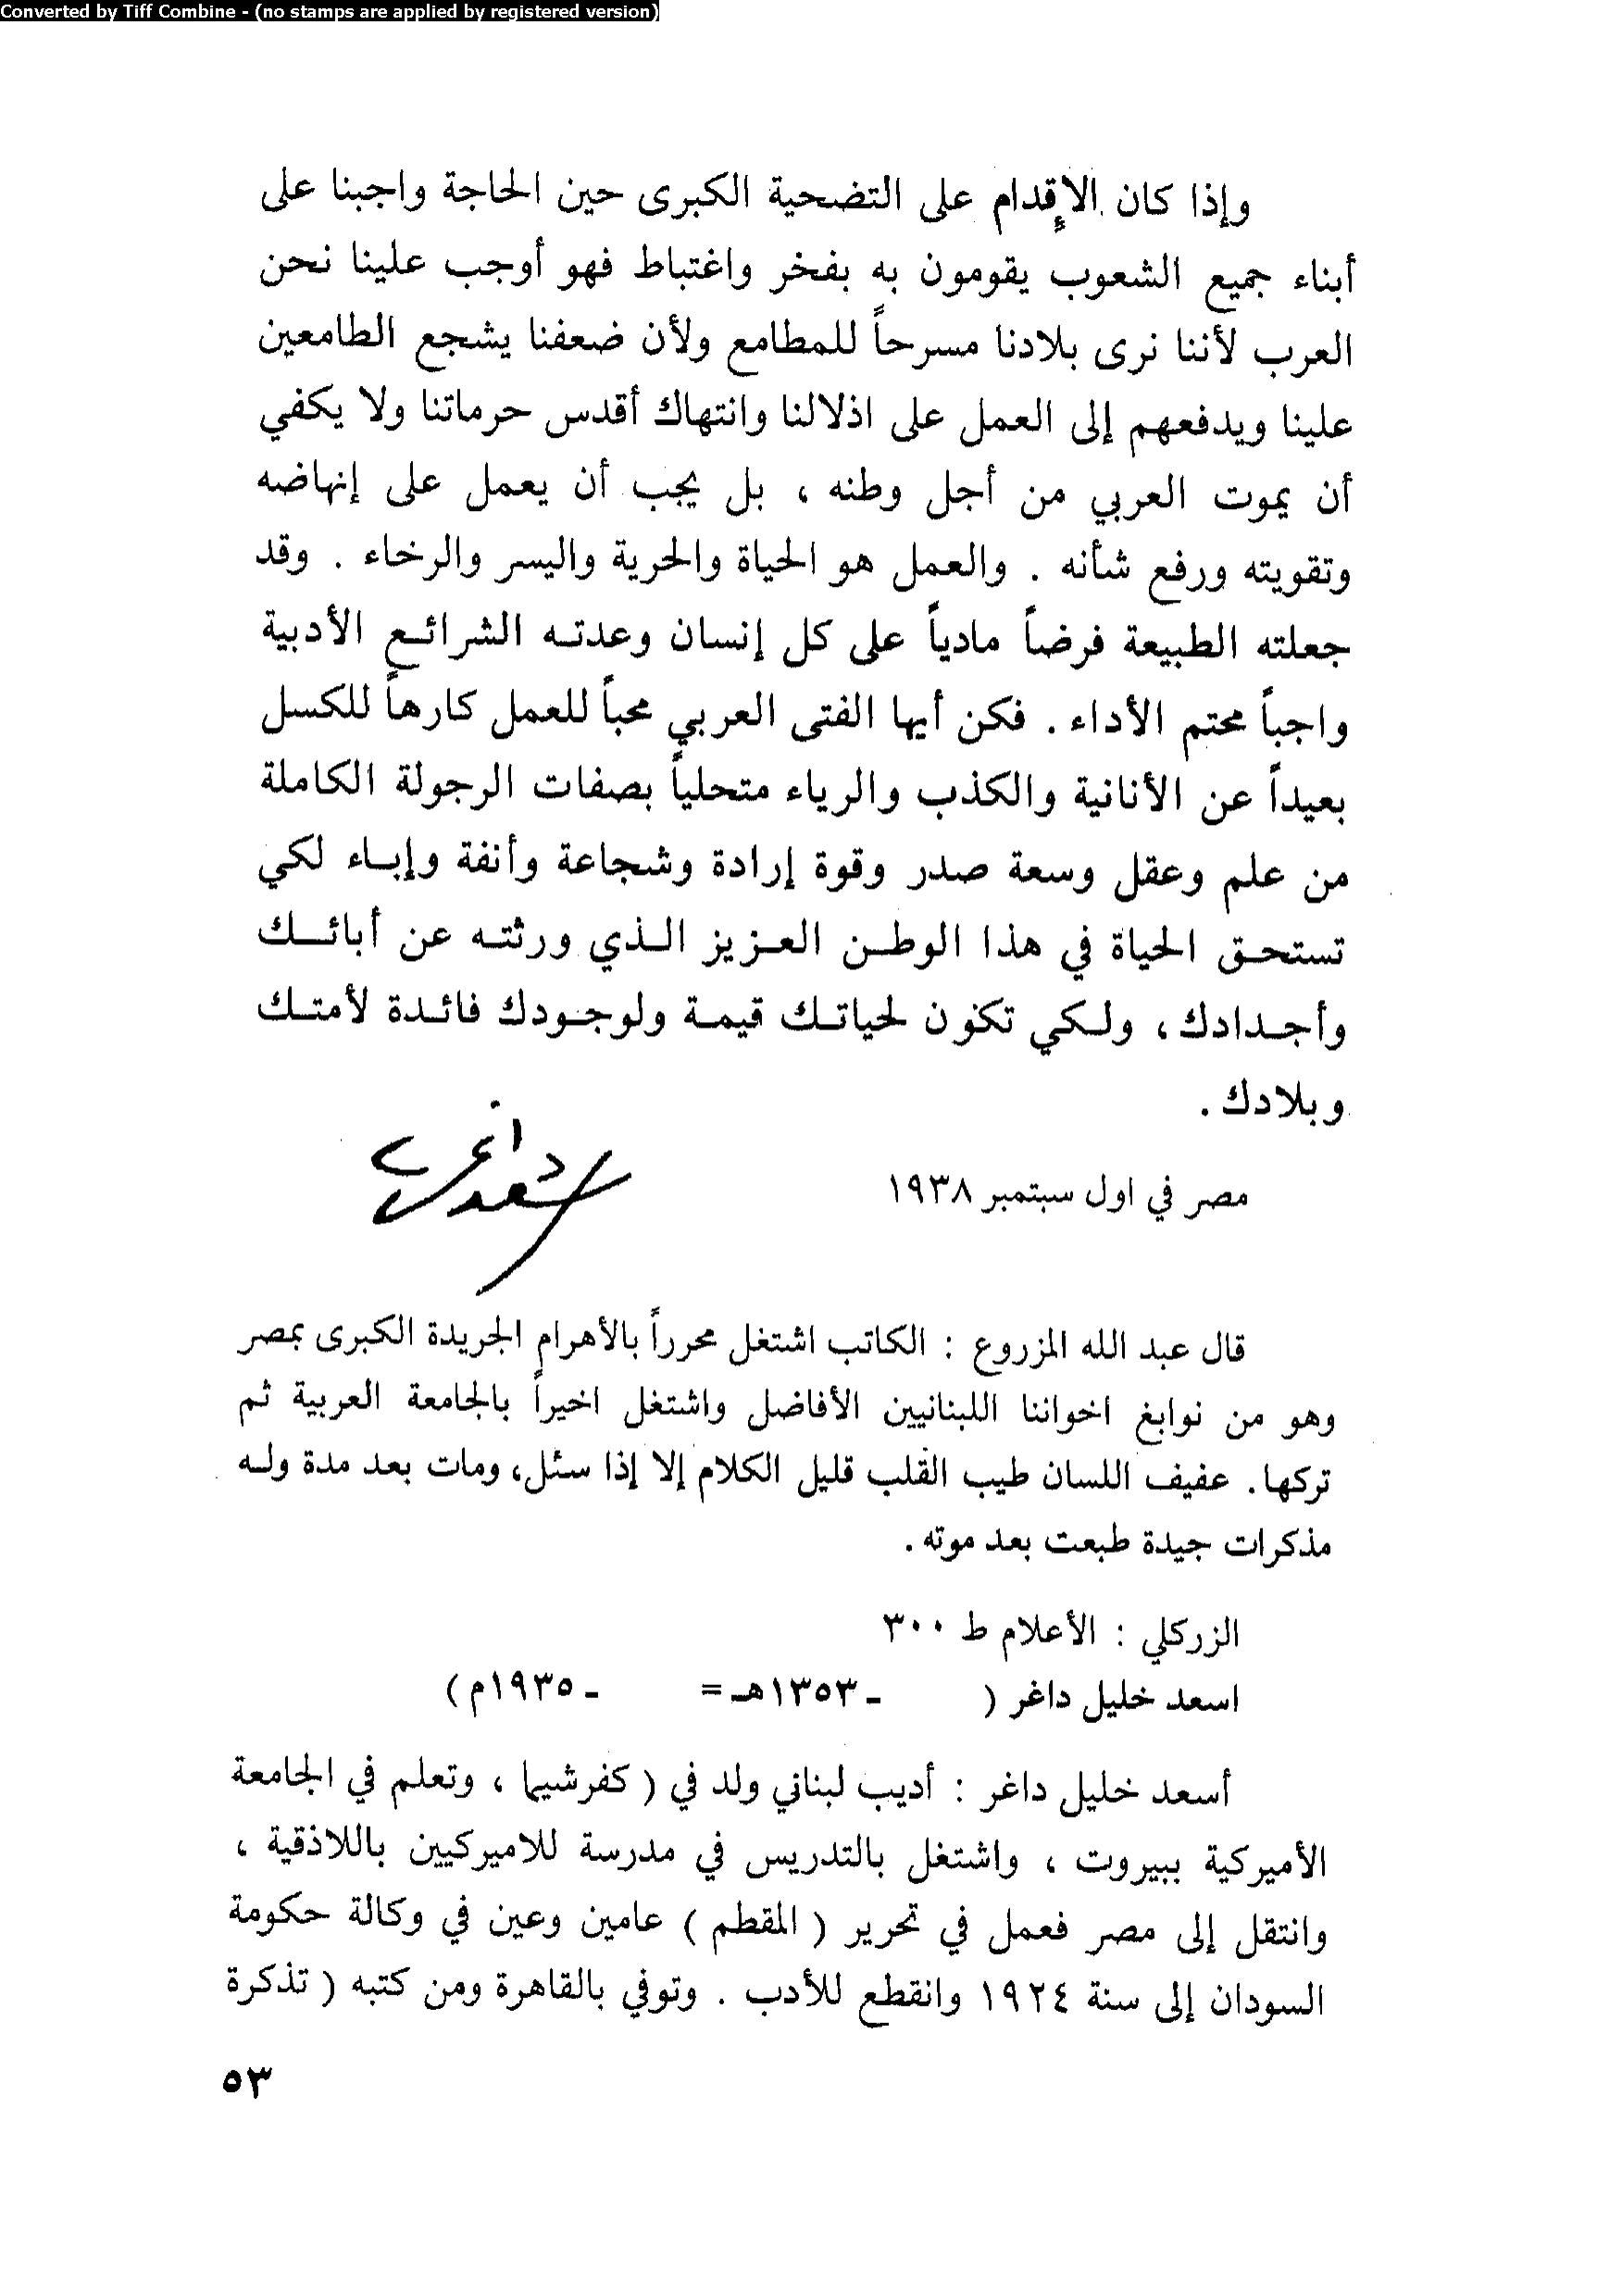 Converted by Tiff Combine - (no stamps are applied by registered version)
وإذا كان الإقدام على التضحية الكبرى حين الحاجة واجبنا على
أبناء جميع الشعوب يقومون به بفخر واغتباط فهو أوجب علينا نحن
العرب لأننا نرى بلادنا مسرحاً للمطامع ولأن ضعفنا يشجع الطامعين
علينا ويدفعهم إلى العمل على اذلالنا وانتهاك أقدس حرماتنا ولا يكفي
أن يموت العربي من أجل وطنه ، بل يجب أن يعمل على إنهاضه
وتقويته ورفع شأنه . والعمل هو الحياة والحرية واليسر والرخاء . وقد
جعلته الطبيعة فرضاً مادياً على كل إنسان وعدته الشرائع الأدبية
واجباً محتم الأداء . فكن أيها الفتى العربي محباً للعمل كارهاً للكسل
بعيداً عن الأنانية والكذب والرياء متحلياً بصفات الرجولة الكاملة
من علم وعقل وسعة صدر وقوة إرادة وشجاعة وأنفة وإباء لكي
تستحق الحياة في هذا الوطن العزيز الذي ورثته عن أبائك
وأجدادك ، ولكي تكون لحياتك قيمة ولوجودك فائدة لأمتك
وبلادك .
مصر في اول سبتمبر ١٩٣٨
أسعد داغر
قال عبد الله المزروع : الكاتب اشتغل محرراً بالأهرام الجريدة الكبرى بمصر
وهو من نوابغ اخواننا اللبنانيين الأفاضل واشتغل اخيراً بالجامعة العربية ثم
تركها . عفيف اللسان طيب القلب قليل الكلام إلا إذا سئل ، ومات بعد مدة وله
مذكرات جيدة طبعت بعد موته .
الزركلي : الأعلام ط ٣٠٠
اسعد خليل داغر ( - ١٣٥٣هـ = - ١٩٣٥م )
أسعد خليل داغر : أديب لبناني ولد في ( كفرشيما ، وتعلم في الجامعة
الأميركية ببيروت ، واشتغل بالتدريس في مدرسة للاميركيين باللاذقية ،
وانتقل إلى مصر فعمل في تحرير ( المقطم ) عامين وعين في وكالة حكومة
السودان إلى سنة ١٩٢٤ وانقطع للأدب . وتوفي بالقاهرة ومن كتبه ( تذكرة
٥٣